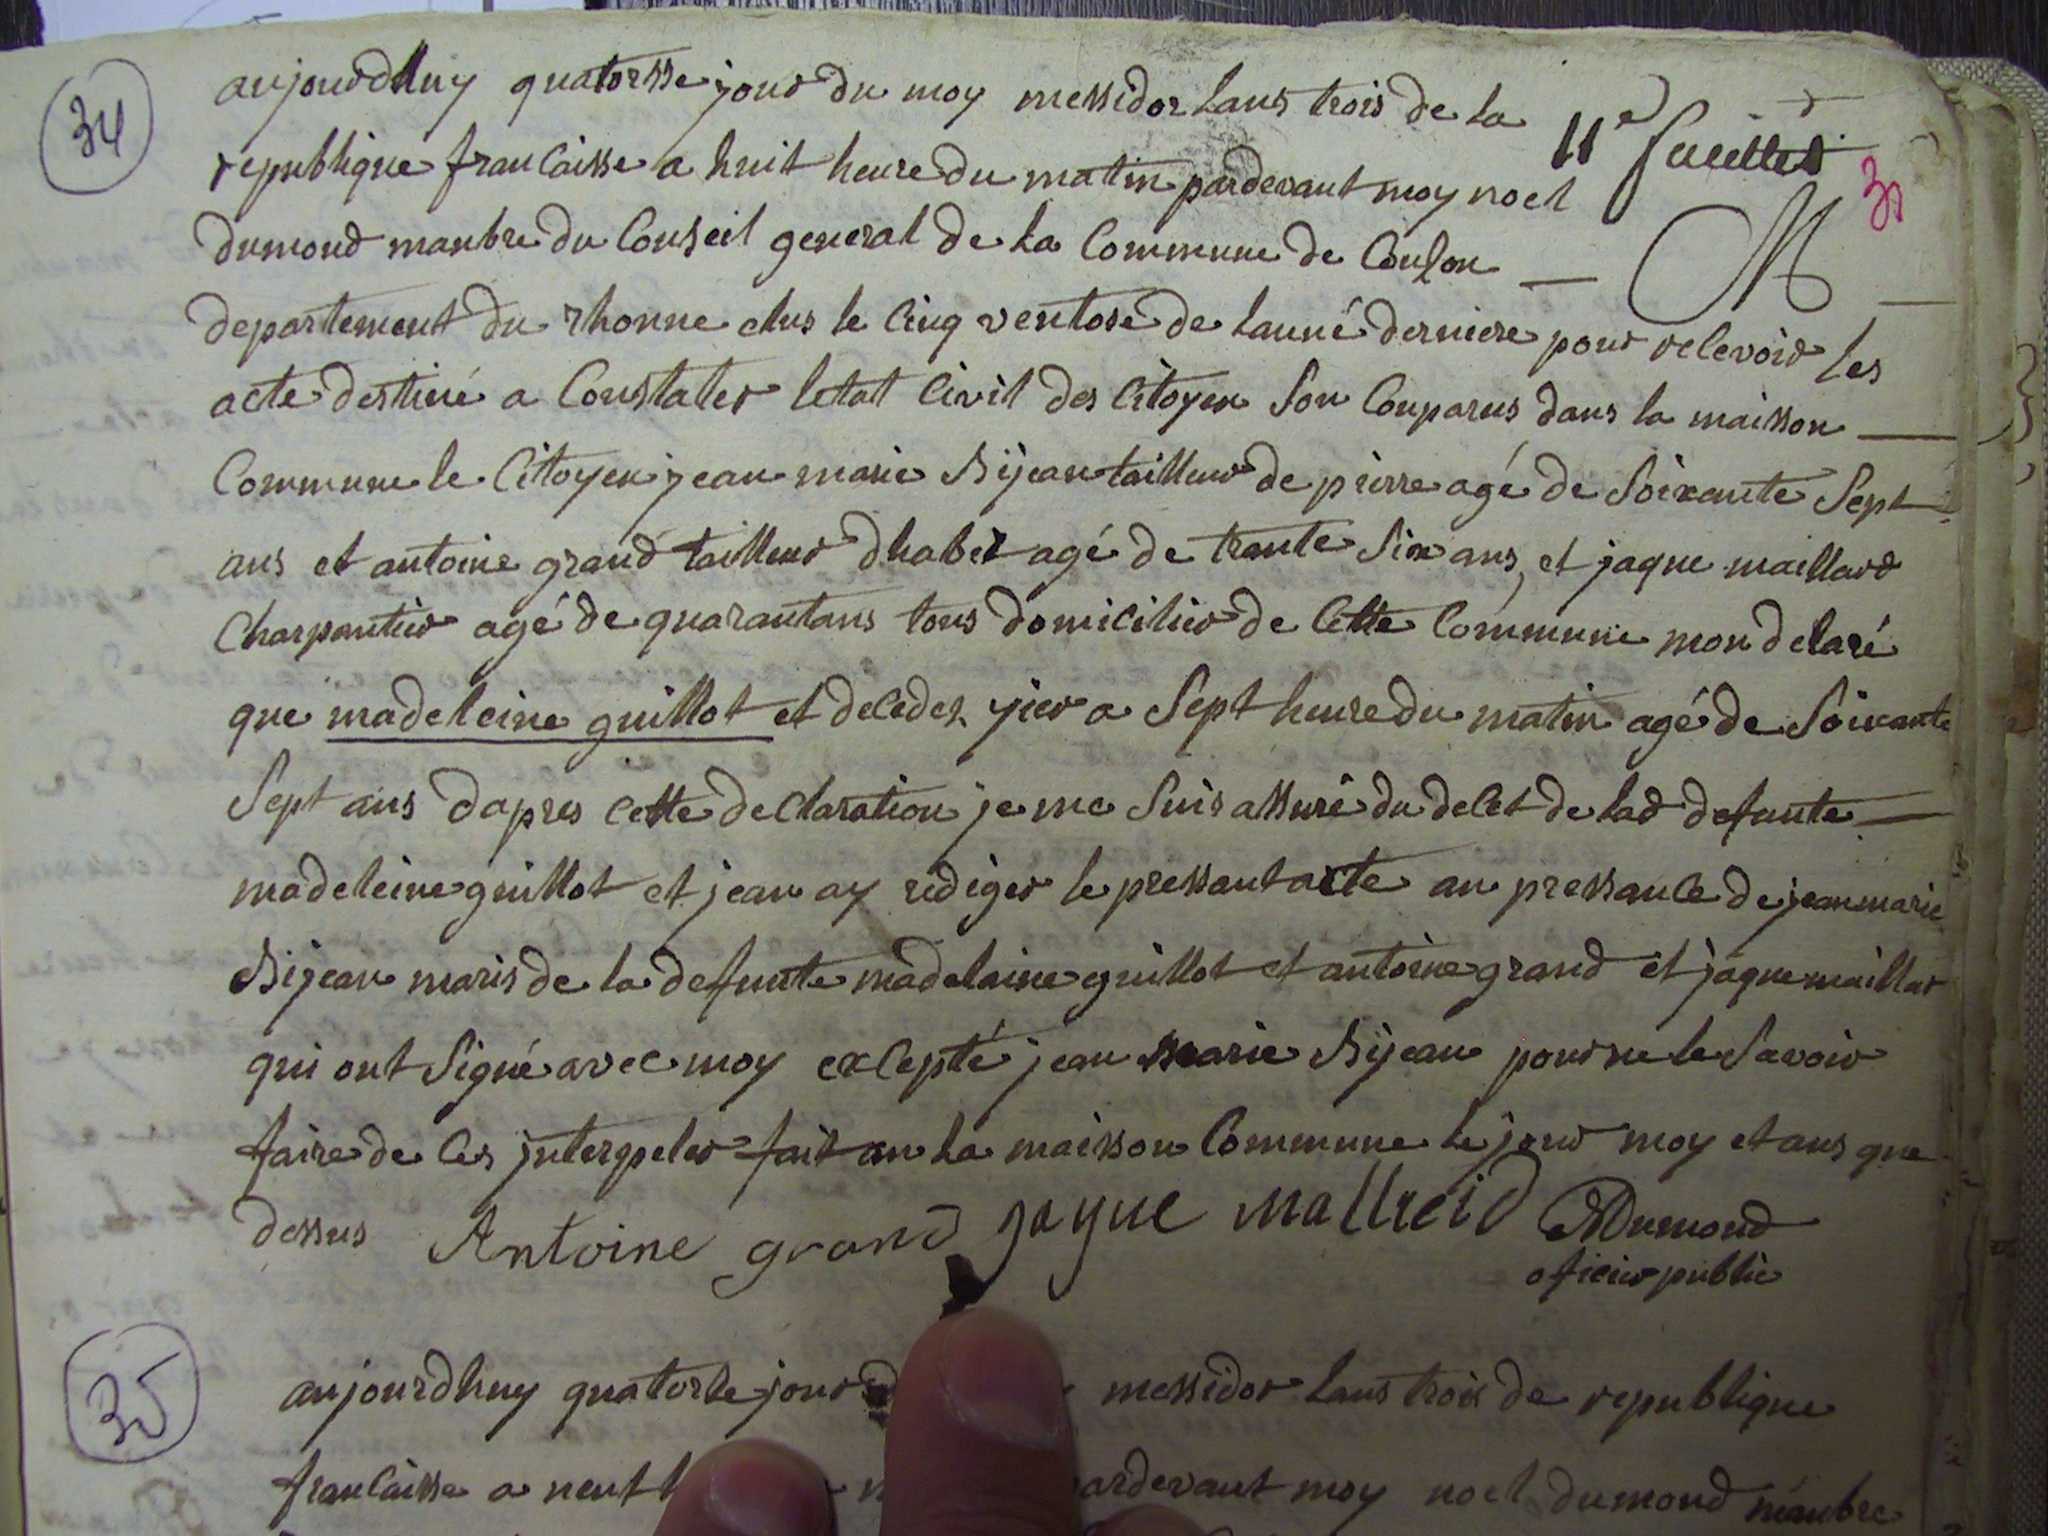 34
aujourdhuy quatorsse jour du moy messidor lans trois de la
11e feuillet
30
republique francaisse a huit heure du matin pardevant moy noel
dumond manbre du Conseil general de la Commune de Couson
departement du rhonne elus le cinq ventose de lanné derniere pour recevoir les
acte destiné a Constater letat civil des citoyen son Conparus dans la maisson
Commune le citoyen jean marie Bijean tailleur de pierre agé de soixante sept
ans et antoine grand tailleur dhabet agé de trante six ans, et jaque maillard
Charpantier agé de quarantans tous domicilier de cette Commune mon delaré
que madeleine guillot et deceder yier a sept heure du matin agé de soixante
sept ans dapres cette declaration je me suis assuré du delet de lad defunte
madeleine guillot et jean ay rediger le pressant acte an pressance de jean marie
Bijean maris de la defunte madelaine guillot et antoine grand et jaque maillar
qui ont signé avec moy excepté jean marie Bijean pour ne le savoir
faire de ces interpeler fait an la maisson Commune le jour moy et ans que
dessus Antoine grand jaque mallreid NDumond
oficier public
35
aujourdhuy quatorze jour messidor lans trois de republique
francaisse a neuf pardevant moy noel dumond manbre